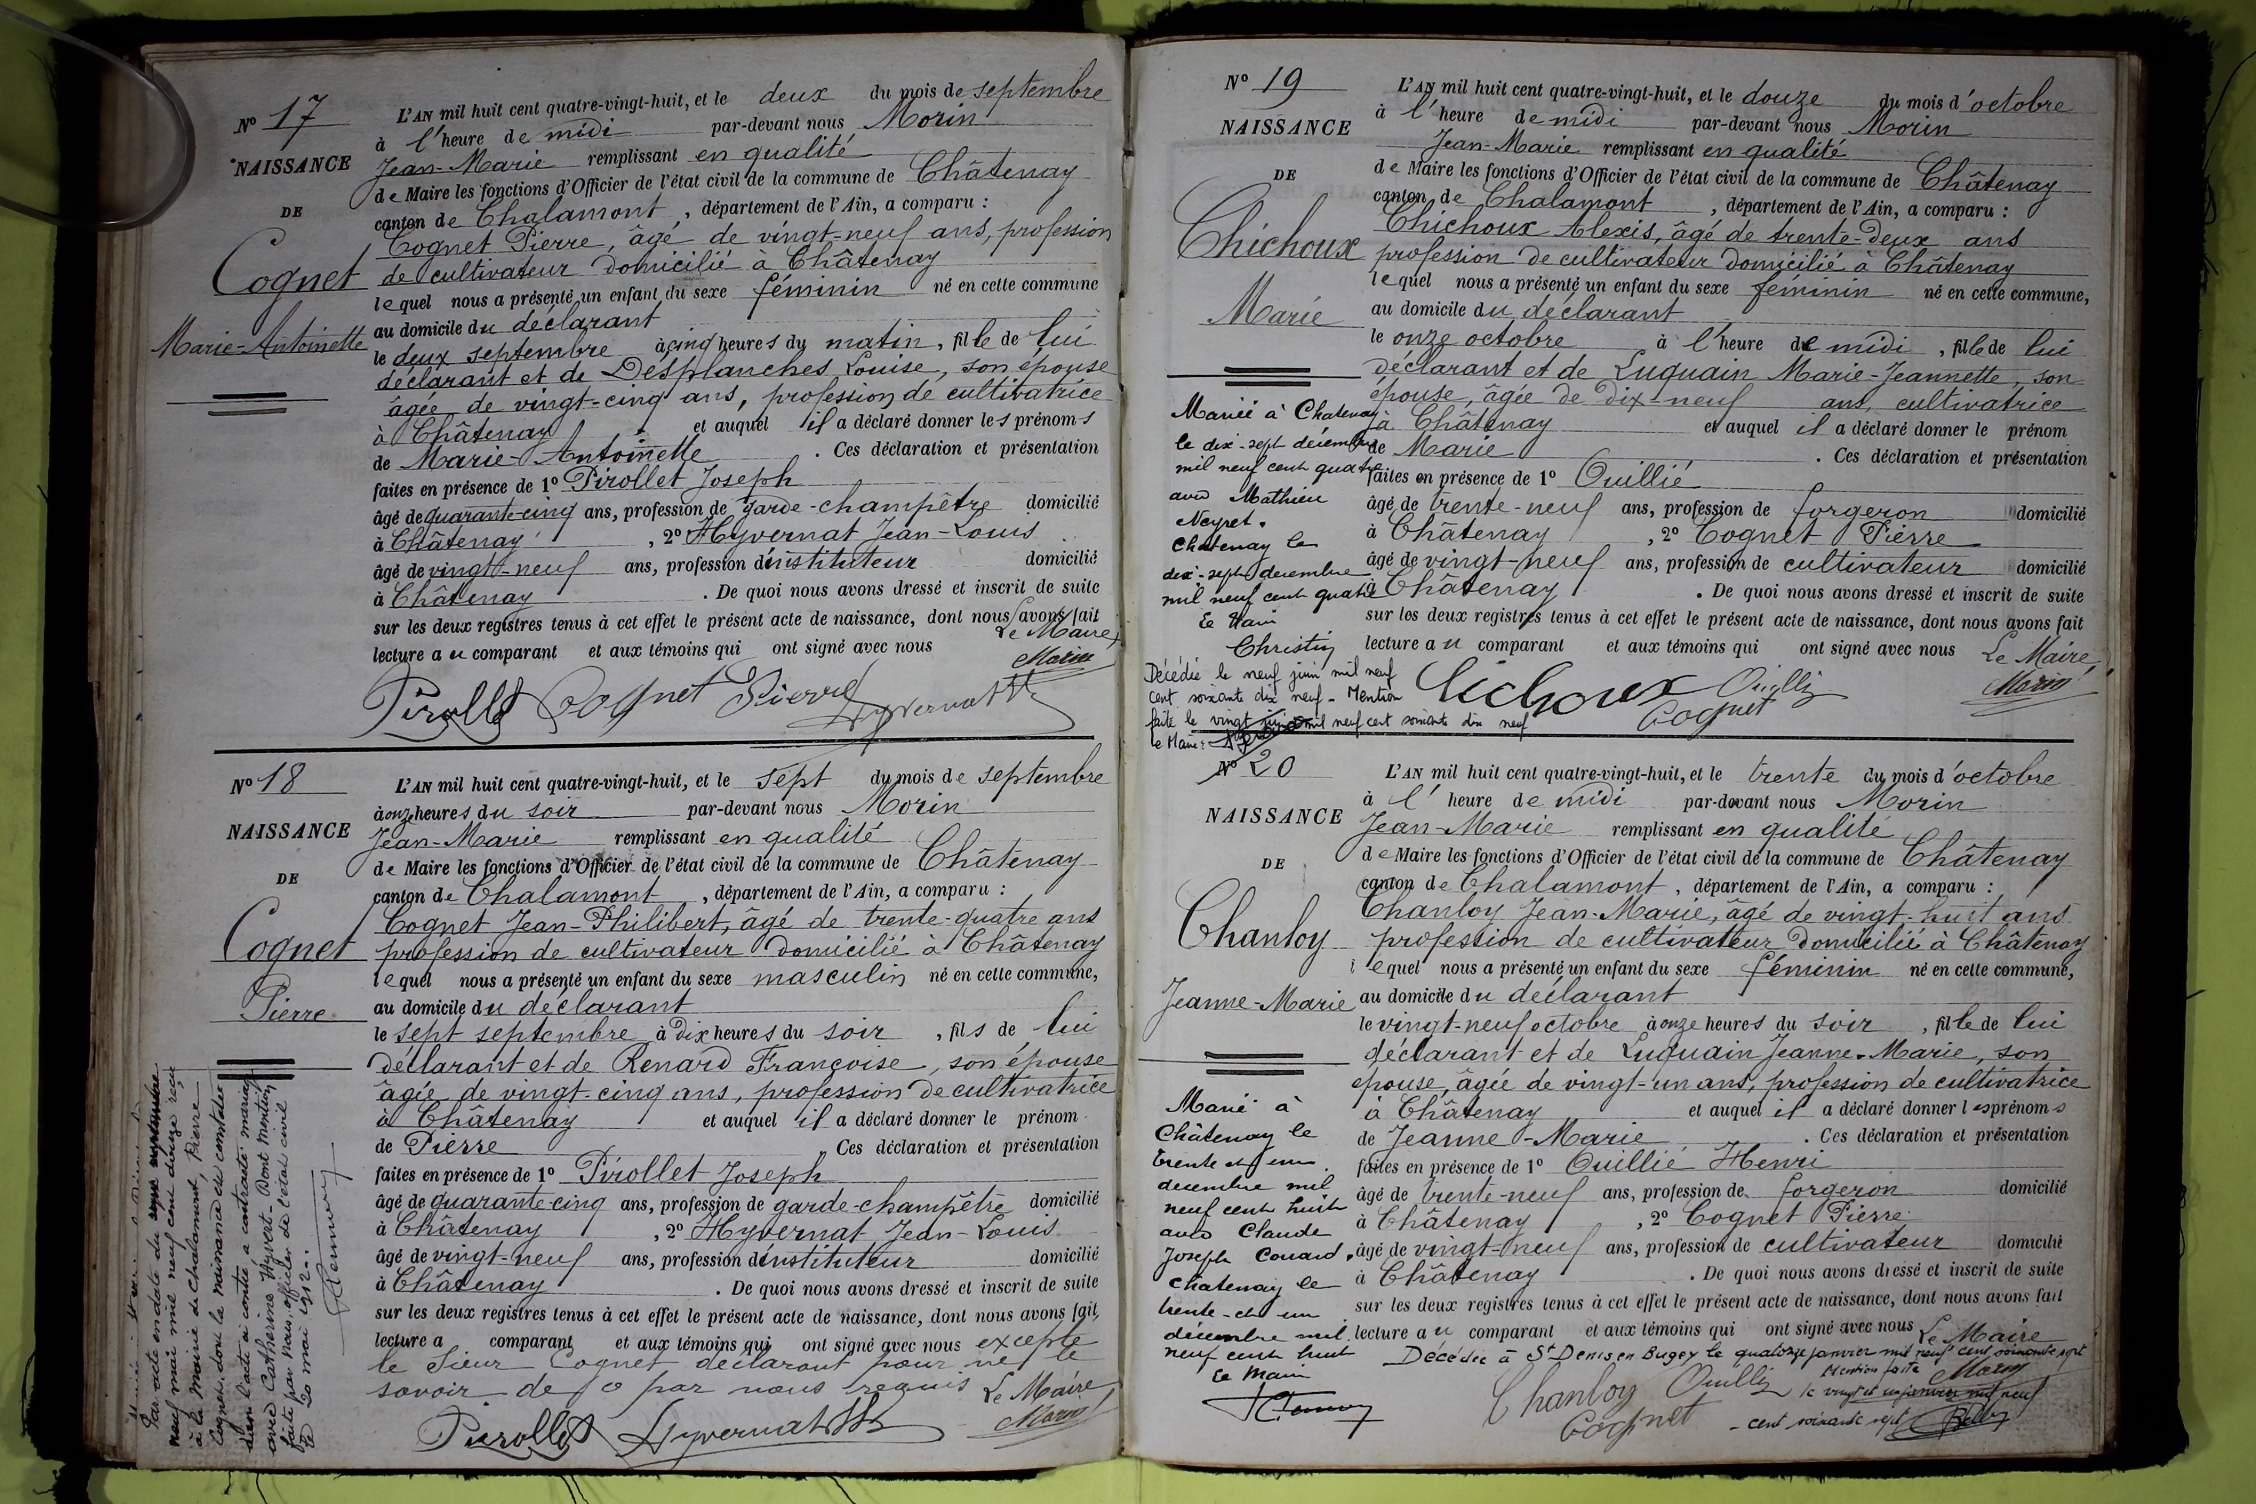 N° 17
NAISSANCE
DE
Cognet
Marie-Antoinette
L'AN mil huit cent quatre-vingt-huit, et le deux du mois de septembre
à l'heure de midi par-devant nous Morin
Jean-Marie remplissant en qualité
de Maire les fonctions d'Officier de l'état civil de la commune de Châtenay
canton de Chalamont, département de l'Ain, a comparu :
Cognet Pierre, âgé de vingt-neuf ans, profession
de cultivateur domicilié à Châtenay
lequel nous a présenté un enfant du sexe féminin né en cette commune
au domicile du déclarant
le deux septembre à cinq heures du matin, fille de lui
déclarant et de Desplanches Louise, son épouse
âgée de vingt-cinq ans, profession de cultivatrice
à Châtenay et auquel il a déclaré donner les prénoms
de Marie-Antoinette . Ces déclaration et présentation
faites en présence de 1° Pirollet Joseph
âgé de quarante-cinq ans, profession de garde-champêtre domicilié
à Châtenay , 2° Hyvernat Jean-Louis
âgé de vingt-neuf ans, profession d'instituteur domicilié
à Châtenay . De quoi nous avons dressé et inscrit de suite
sur les deux registres tenus à cet effet le présent acte de naissance, dont nous avons fait
lecture au comparant et aux témoins qui ont signé avec nous Le Maire,
Morin
Pirollet Cognet Pierre Hyvernat
N° 18
NAISSANCE
DE
Cognet
Pierre
L'AN mil huit cent quatre-vingt-huit, et le sept du mois de septembre
à onze heures du soir par-devant nous Morin
Jean-Marie remplissant en qualité
de Maire les fonctions d'Officier de l'état civil de la commune de Châtenay
canton de Chalamont, département de l'Ain, a comparu :
Cognet Jean-Philibert, âgé de trente-quatre ans
profession de cultivateur domicilié à Châtenay
lequel nous a présenté un enfant du sexe masculin né en cette commune,
au domicile du déclarant
le sept septembre à dix heures du soir, fils de lui
déclarant et de Renard Françoise, son épouse
âgée de vingt-cinq ans, profession de cultivatrice
à Châtenay et auquel il a déclaré donner le prénom
de Pierre Ces déclaration et présentation
faites en présence de 1° Pirollet Joseph
âgé de quarante-cinq ans, profession de garde-champêtre domicilié
à Châtenay , 2° Hyvernat Jean-Louis
âgé de vingt-neuf ans, profession d'instituteur domicilié
à Châtenay . De quoi nous avons dressé et inscrit de suite
sur les deux registres tenus à cet effet le présent acte de naissance, dont nous avons fait
lecture a comparant et aux témoins qui ont signé avec nous excepté
le Sieur Cognet déclarant pour ne le
savoir de ce par nous requis Le Maire
Morin
Pirollet Hyvernat
Par acte en date du
neuf mai mil neuf cent douze reçu
à la Mairie de Chalamont, Pierre
Cognet, dont la naissance est constatée
dans l'acte ci contre a contracté mariage
avec Catherine Hyvert - Dont mention
faite par Nous, officier de l'état civil
le 20 mai 1912.
N° 19
NAISSANCE
DE
Chichoux
Marie
L'AN mil huit cent quatre-vingt-huit, et le douze du mois d'octobre
à l'heure de midi par-devant nous Morin
Jean-Marie remplissant en qualité
de Maire les fonctions d'Officier de l'état civil de la commune de Châtenay
canton de Chalamont , département de l'Ain, a comparu :
Chichoux Alexis, âgé de trente-deux ans
profession de cultivateur domicilié à Châtenay
lequel nous a présenté un enfant du sexe féminin né en cette commune,
au domicile du déclarant
le onze octobre à l'heure de midi , fille de lui
déclarant et de Luquain Marie-Jeannette, son
épouse, âgée de dix-neuf ans, cultivatrice
à Châtenay et auquel il a déclaré donner le prénom
de Marie . Ces déclaration et présentation
faites en présence de 1° Ouillié
âgé de trente-neuf ans, profession de forgeron domicilié
à Châtenay , 2° Cognet Pierre
âgé de vingt-neuf ans, profession de cultivateur domicilié
à Châtenay . De quoi nous avons dressé et inscrit de suite
sur les deux registres tenus à cet effet le présent acte de naissance, dont nous avons fait
lecture au comparant et aux témoins qui ont signé avec nous Le Maire,
Morin
Chichoux Ouillié
Cognet
Mariée à Chatenay
le dix-sept décembre
mil neuf cent quatre
avec Mathieu
Neyret.
Chatenay le
dix-sept décembre
mil neuf cent quatre
Le Maire
Christin
Décédée le neuf juin mil neuf
cent soixante dix neuf - Mention
faite le vingt juin mil neuf cent soixante dix neuf
Le Maire :
N° 20
NAISSANCE
DE
Chanloy
Jeanne-Marie
L'AN mil huit cent quatre-vingt-huit, et le trente du mois d'octobre
à l'heure de midi par-devant nous Morin
Jean-Marie remplissant en qualité
de Maire les fonctions d'Officier de l'état civil de la commune de Châtenay
canton de Chalamont, département de l'Ain, a comparu :
Chanloy Jean-Marie, âgé de vingt-huit ans
profession de cultivateur domicilié à Châtenay
lequel nous a présenté un enfant du sexe féminin né en cette commune,
au domicile du déclarant
le vingt-neuf octobre à onze heures du soir , fille de lui
déclarant et de Luquain Jeanne-Marie, son
épouse, âgée de vingt-un ans, profession de cultivatrice
à Châtenay et auquel il a déclaré donner les prénoms
de Jeanne-Marie . Ces déclaration et présentation
faites en présence de 1° Ouillié Henri
âgé de trente-neuf ans, profession de forgeron domicilié
à Châtenay , 2° Cognet Pierre
âgé de vingt-neuf ans, profession de cultivateur domicilié
à Châtenay . De quoi nous avons dressé et inscrit de suite
sur les deux registres tenus à cet effet le présent acte de naissance, dont nous avons fait
lecture au comparant et aux témoins qui ont signé avec nous Le Maire
Morin
Chanloy Ouillié
Cognet
Mariée à
Châtenay le
trente et un
décembre mil
neuf cent huit
avec Claude
Joseph Conard.
Chatenay le
trente-et-un
décembre mil
neuf cent huit
Le Maire
Décédée à St Denis en Bugey le quatorze janvier mil neuf cent soixante sept
Mention faite
le vingt et un janvier mil neuf
cent soixante sept